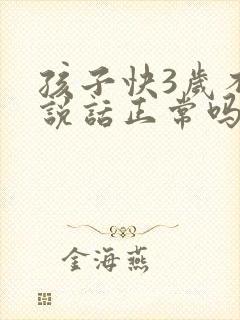 孩子快3歲不
説話正常吗
金海燕